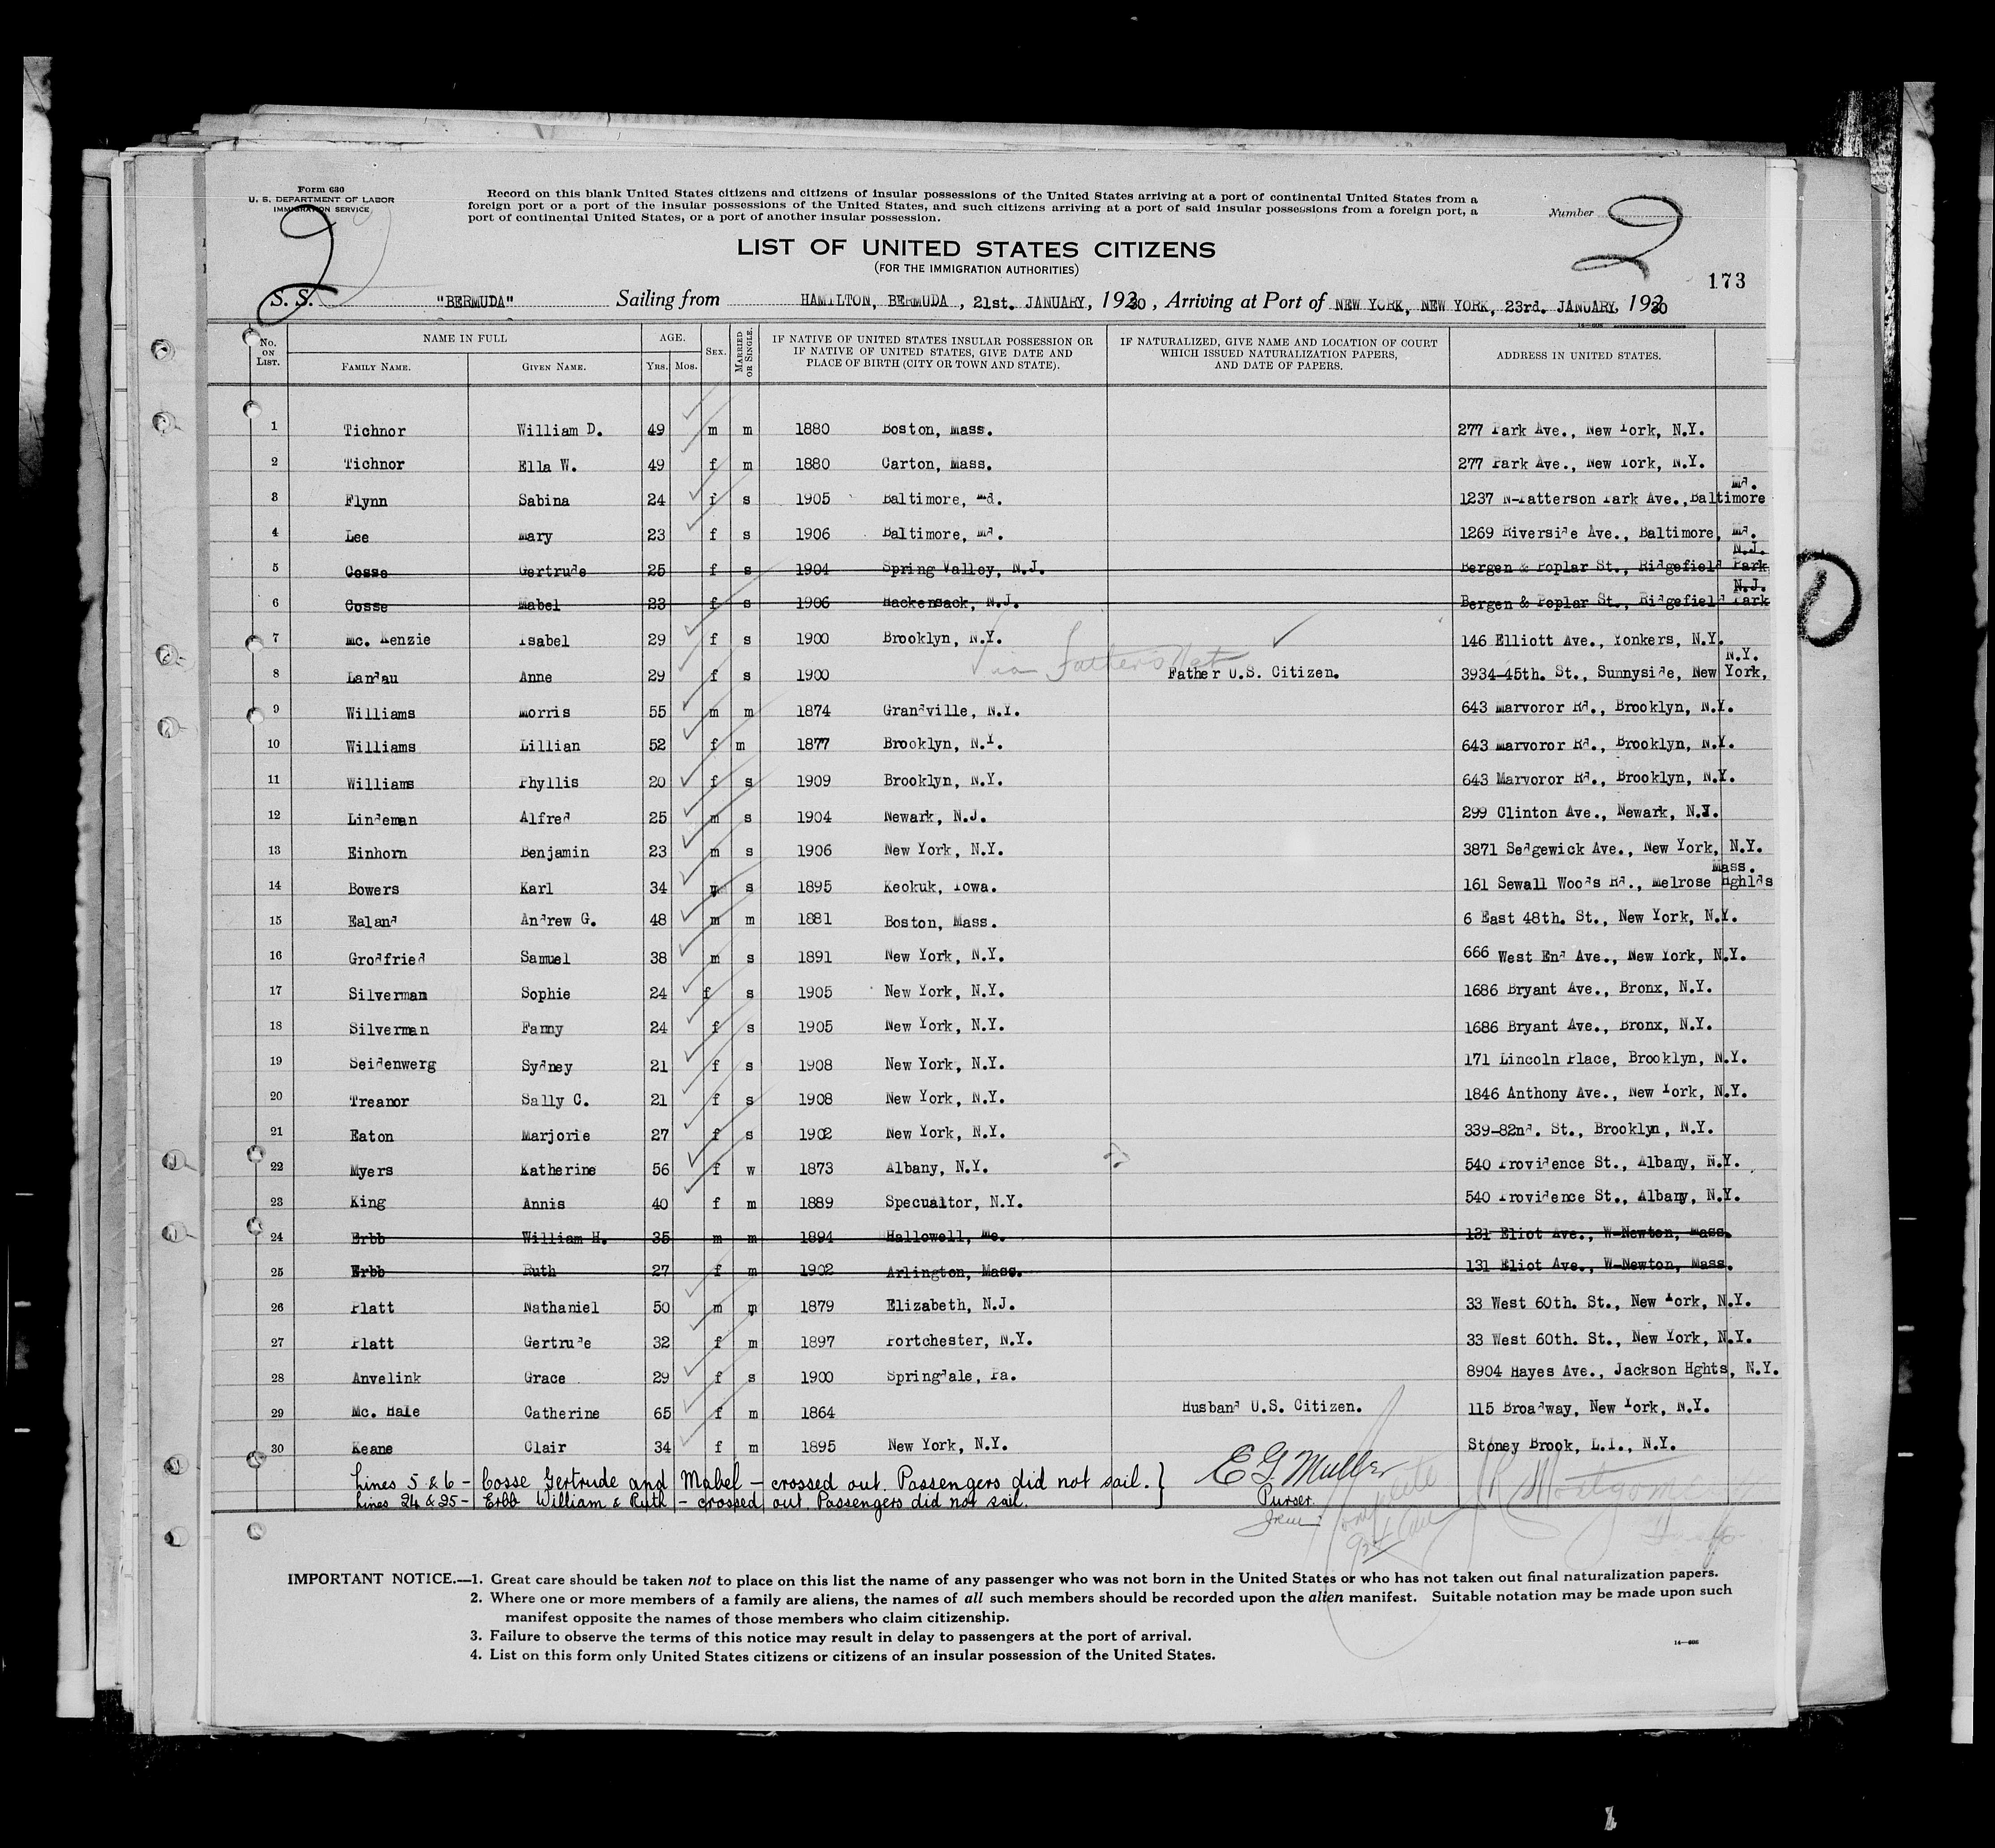 Form 630
U. S. DEPARTMENT OF LABOR
IMMIGRATION SERVICE
Record on this blank United States citizens and citizens of insular possessions of the United States arriving at a port of continental United States from a
foreign port or a port of the insular possessions of the United States, and such citizens arriving at a port of said insular possessions from a foreign port, a
port of continental United States, or a port of another insular possession.
Number 2
2
LIST OF UNITED STATES CITIZENS
(FOR THE IMMIGRATION AUTHORITIES)
173
S. S. "BERMUDA" Sailing from HAMILTON, BERMUDA, 21st. JANUARY, 1930, Arriving at Port of NEW YORK, NEW YORK, 23rd. JANUARY, 1930
No. ON LIST. NAME IN FULL FAMILY NAME. GIVEN NAME. AGE. YRS. MOS. SEX. MARRIED OR SINGLE. IF NATIVE OF UNITED STATES INSULAR POSSESSION OR IF NATIVE OF UNITED STATES, GIVE DATE AND PLACE OF BIRTH (CITY OR TOWN AND STATE). IF NATURALIZED, GIVE NAME AND LOCATION OF COURT WHICH ISSUED NATURALIZATION PAPERS, AND DATE OF PAPERS. ADDRESS IN UNITED STATES.
1 Tichnor William D. 49 m m 1880 Boston, Mass. 277 Park Ave., New York, N.Y.
2 Tichnor Ella W. 49 f m 1880 Carton, Mass. 277 Park Ave., New York, N.Y.
3 Flynn Sabina 24 f s 1905 Baltimore, Md. 1237 N-Patterson Park Ave., Baltimore Md.
4 Lee Mary 23 f s 1906 Baltimore, Md. 1269 Riverside Ave., Baltimore, Md.
5 Cosse Gertrude 25 f s 1904 Spring Valley, N.J. Bergen & Poplar St., Ridgefield Park N.J.
6 Cosse Mabel 23 f s 1906 Hackensack, N.J. Bergen & Poplar St., Ridgefield Park N.J.
7 Mc. Kenzie Isabel 29 f s 1900 Brooklyn, N.Y. 146 Elliott Ave., Yonkers, N.Y.
8 Landau Anne 29 f s 1900 via father's Nat Father U.S. Citizen. 3934-45th. St., Sunnyside, New York, N.Y.
9 Williams Morris 55 m m 1874 Grandville, N.Y. 643 Marvoror Rd., Brooklyn, N.Y.
10 Williams Lillian 52 f m 1877 Brooklyn, N.Y. 643 Marvoror Rd., Brooklyn, N.Y.
11 Williams Phyllis 20 f s 1909 Brooklyn, N.Y. 643 Marvoror Rd., Brooklyn, N.Y.
12 Lindeman Alfred 25 m s 1904 Newark, N.J. 299 Clinton Ave., Newark, N.J.
13 Einhorn Benjamin 23 m s 1906 New York, N.Y. 3871 Sedgewick Ave., New York, N.Y.
14 Bowers Karl 34 m s 1895 Keokuk, Iowa. 161 Sewall Woods Rd., Melrose Hghlds Mass.
15 Ealand Andrew G. 48 m m 1881 Boston, Mass. 6 East 48th. St., New York, N.Y.
16 Grodfried Samuel 38 m s 1891 New York, N.Y. 666 West End Ave., New York, N.Y.
17 Silverman Sophie 24 f s 1905 New York, N.Y. 1686 Bryant Ave., Bronx, N.Y.
18 Silverman Fanny 24 f s 1905 New York, N.Y. 1686 Bryant Ave., Bronx, N.Y.
19 Seidenwerg Sydney 21 f s 1908 New York, N.Y. 171 Lincoln Place, Brooklyn, N.Y.
20 Treanor Sally C. 21 f s 1908 New York, N.Y. 1846 Anthony Ave., New York, N.Y.
21 Eaton Marjorie 27 f s 1902 New York, N.Y. 339-82nd. St., Brooklyn, N.Y.
22 Myers Katherine 56 f w 1873 Albany, N.Y. 540 Providence St., Albany, N.Y.
23 King Annis 40 f m 1889 Specualtor, N.Y. 540 Providence St., Albany, N.Y.
24 Erbb William H. 35 m m 1894 Hallowell, Me. 131 Eliot Ave., W-Newton, Mass.
25 Erbb Ruth 27 f m 1902 Arlington, Mass. 131 Eliot Ave., W-Newton, Mass.
26 Platt Nathaniel 50 m m 1879 Elizabeth, N.J. 33 West 60th. St., New York, N.Y.
27 Platt Gertrude 32 f m 1897 Portchester, N.Y. 33 West 60th. St., New York, N.Y.
28 Anvelink Grace 29 f s 1900 Springdale, Pa. 8904 Hayes Ave., Jackson Hghts, N.Y.
29 Mc. Hale Catherine 65 f m 1864 Husband U.S. Citizen. 115 Broadway, New York, N.Y.
30 Keane Clair 34 f m 1895 New York, N.Y. Stoney Brook, L.I., N.Y.
Lines 5 & 6 - Cosse Gertrude and Mabel - crossed out. Passengers did not sail. } E G Muller
Lines 24 & 25 - Erbb William & Ruth - crossed out. Passengers did not sail. Purser.
J R Montgomery
IMPORTANT NOTICE.—1. Great care should be taken not to place on this list the name of any passenger who was not born in the United States or who has not taken out final naturalization papers.
2. Where one or more members of a family are aliens, the names of all such members should be recorded upon the alien manifest. Suitable notation may be made upon such
manifest opposite the names of those members who claim citizenship.
3. Failure to observe the terms of this notice may result in delay to passengers at the port of arrival.
4. List on this form only United States citizens or citizens of an insular possession of the United States.